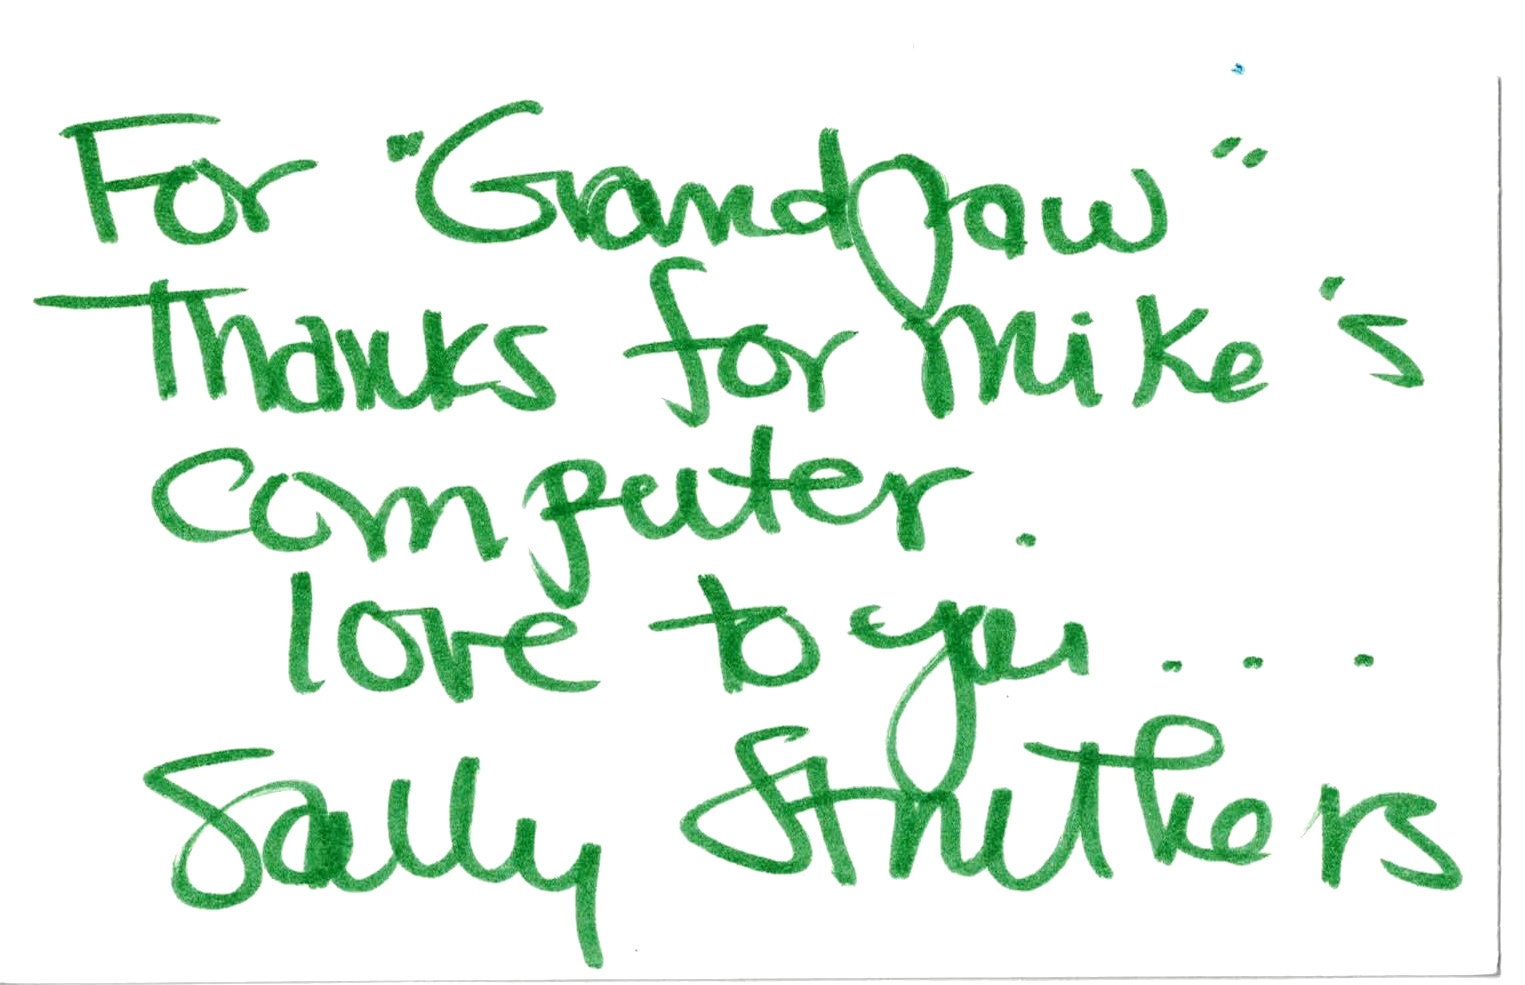 For "Grandpaw"
Thanks for Mike's
computer.
love to you....
Sally Struthers